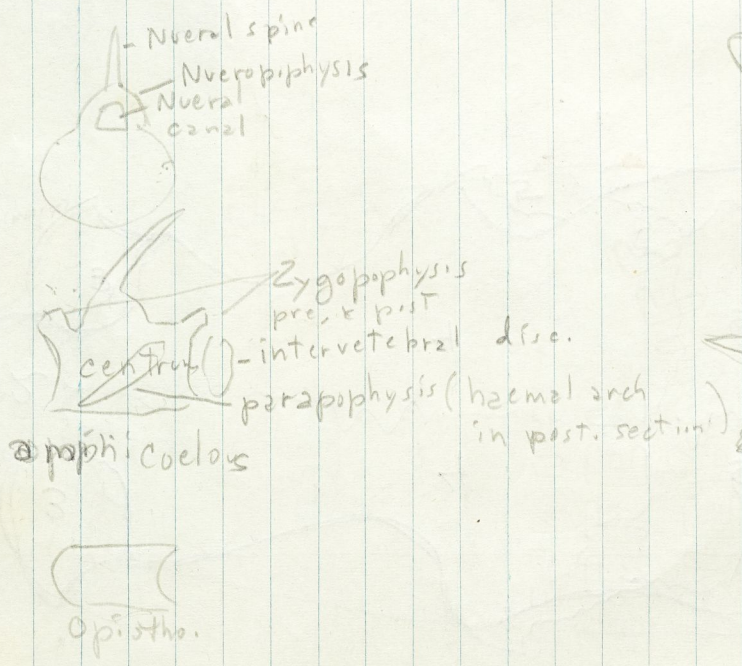 Nueral spine
Nueropiphysis
Nueral
canal
Zygopophysis
pre, & post
centrum
intervetebral disc.
parapophysis (haemal arch
in post. section)
amphicoelous
Opistho.